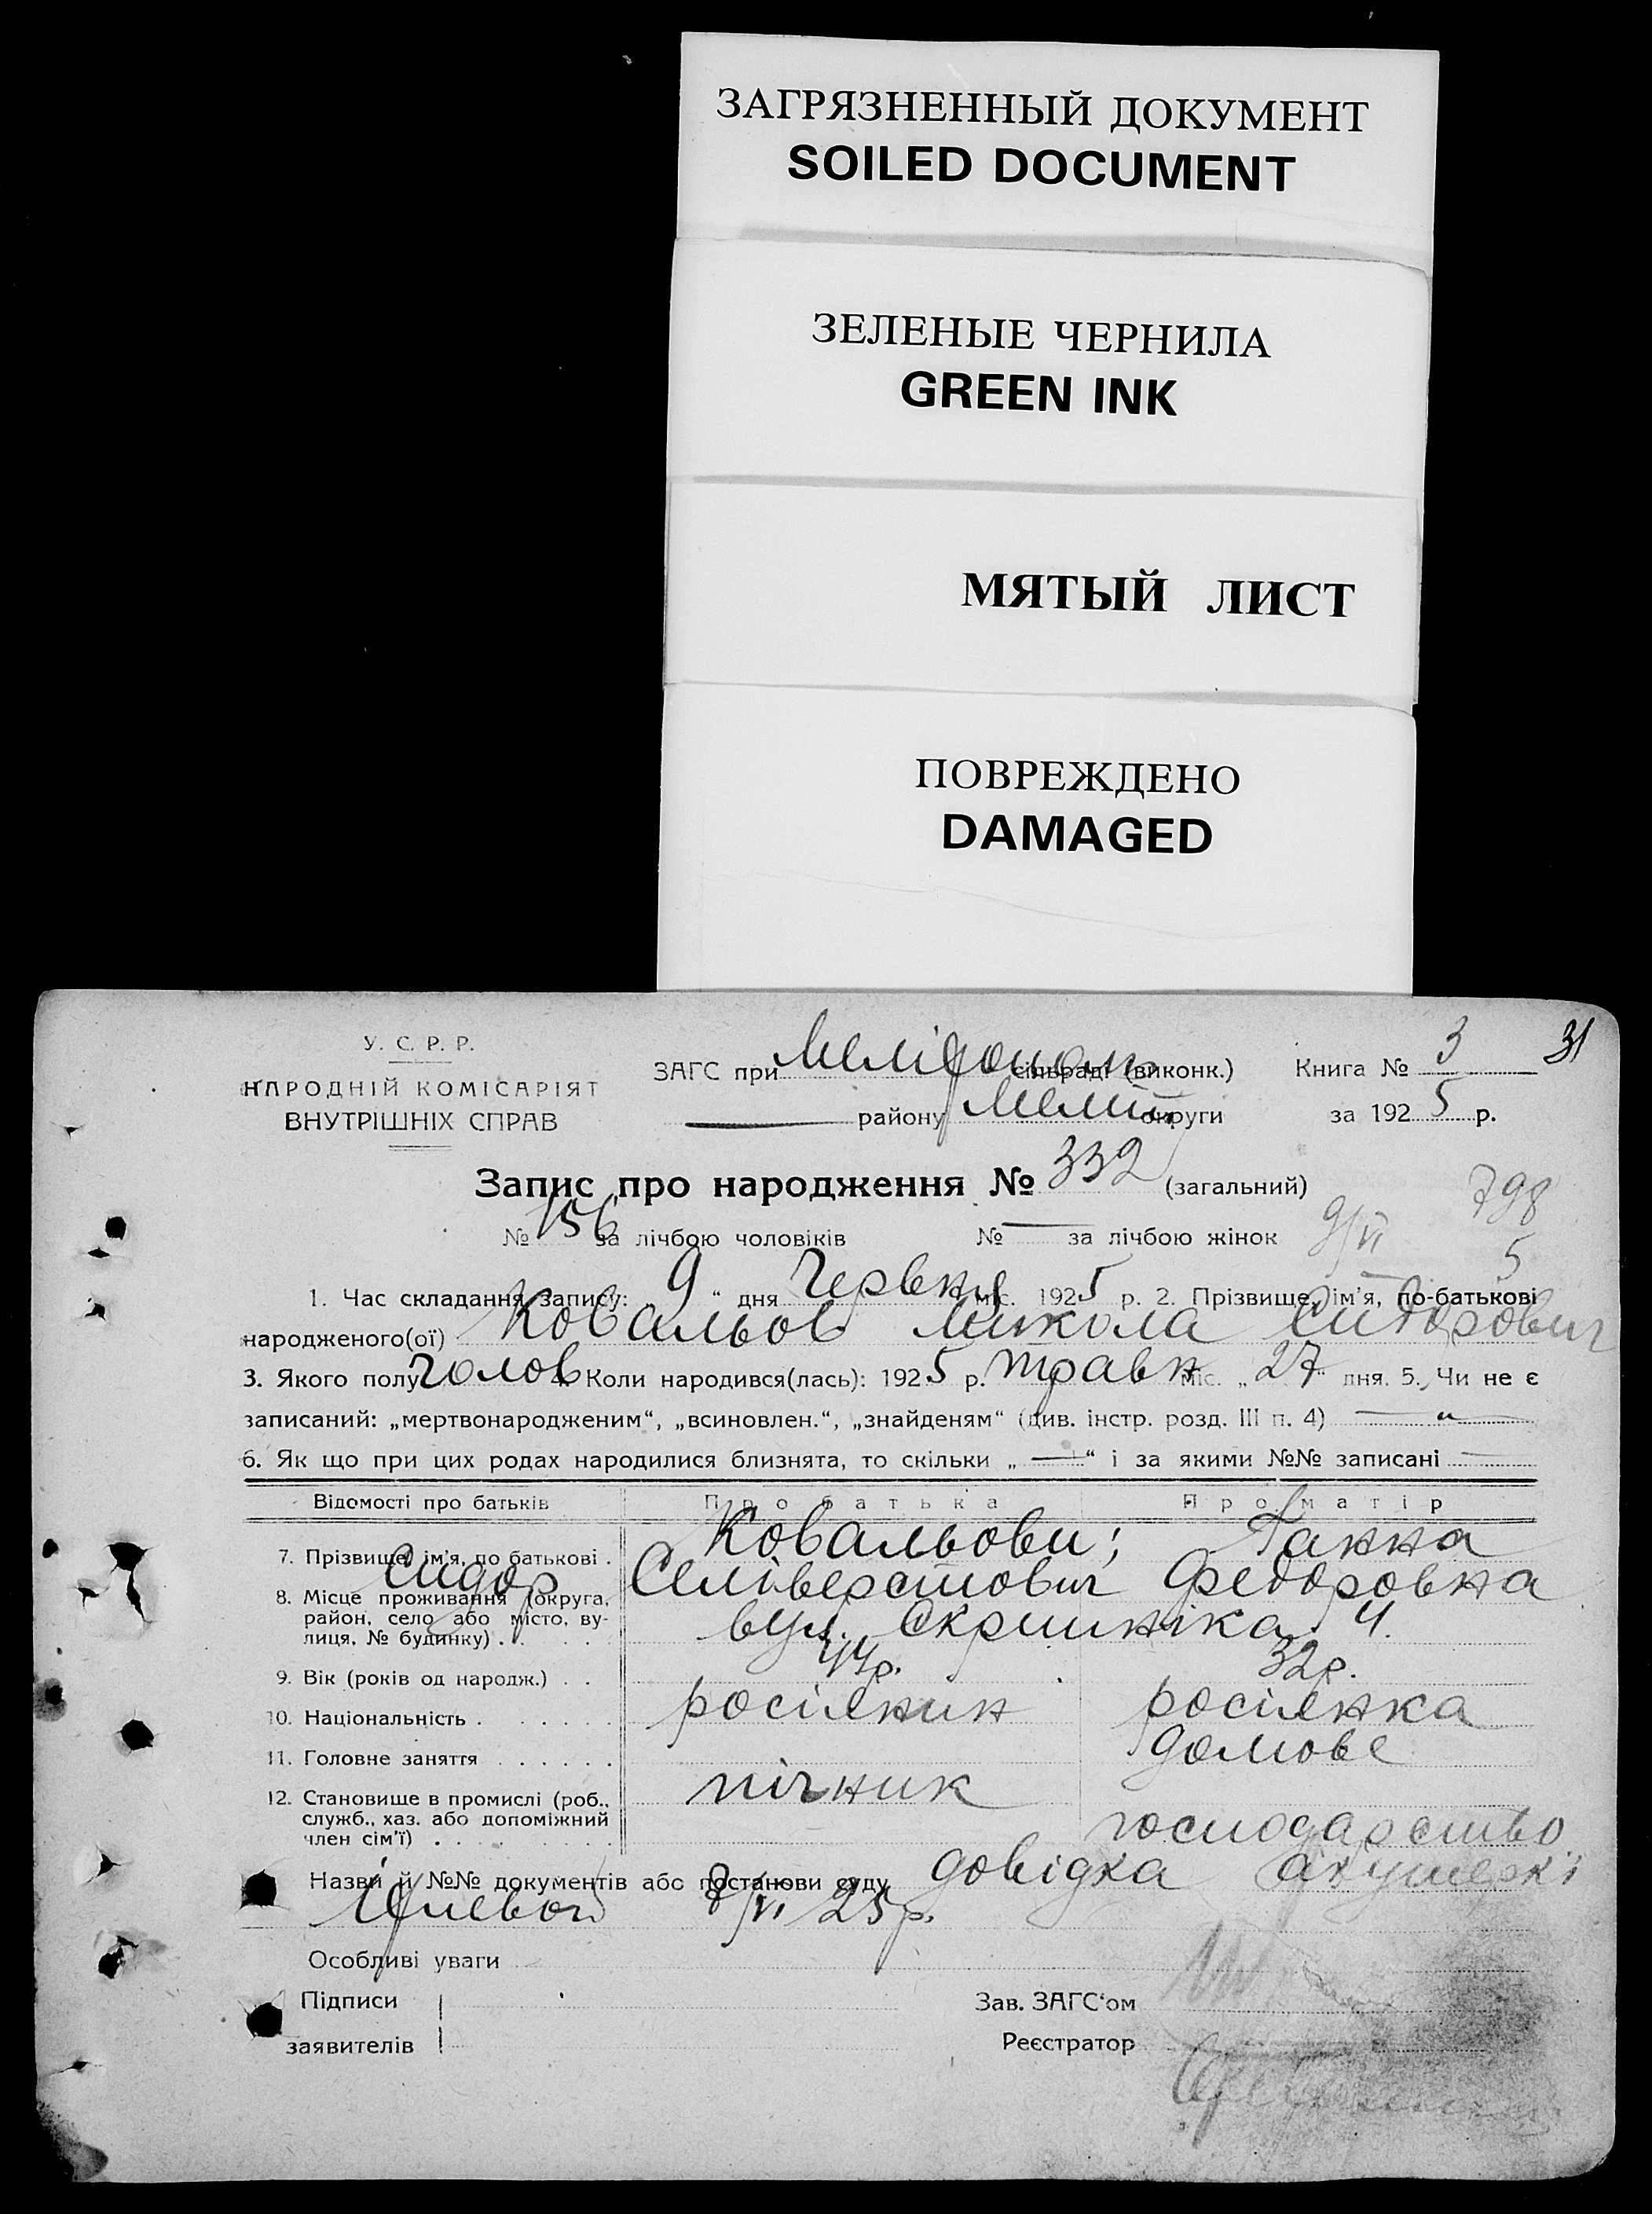 ЗАГРЯЗНЕННЫЙ ДОКУМЕНТ
SOILED DOCUMENT
ЗЕЛЕНЫЕ ЧЕРНИЛА
GREEN INK
МЯТЫЙ ЛИСТ
ПОВРЕЖДЕНО
DAMAGED
31
У. С. Р. Р.
НАРОДНІЙ КОМІСАРІЯТ
ВНУТРІШНІХ СПРАВ
ЗАГС при сільраді (виконк.) Книга № 3
району Меліт. округи за 1925 р.
Запис про народження № 332 (загальний)
798
№ 156 за лічбою чоловіків № — за лічбою жінок 9/VI 5
1. Час складання запису: „ 9 “ дня Червня міс. 1925 р. 2. Прізвище, ім’я, по-батькові
народженого(ої) Ковальов Микола Сидорович
3. Якого полу чолов 4. Коли народився(лась): 1925 р. травн міс. „ 27 “ дня. 5. Чи не є
записаний: „мертвонародженим“, „всиновлен.“, „знайденям“ (див. інстр. розд. III п. 4) — „ —
6. Як що при цих родах народилися близнята, то скільки „ — “ і за якими №№ записані —
Відомості про батьків Про батька Про матір
7. Прізвище, ім’я, по батькові . Ковальови; Ганна
Сидор Селіверстович Федоровна
8. Місце проживання (округа, район, село або місто, вулиця, № будинку) . . вул. Скрипніка 4.
9. Вік (років од народж.) . . 44р. 32р.
10. Національність . . . . . . росіянин росіянка
11. Головне заняття . . . . . . домове
12. Становище в промислі (роб., служб., хаз. або допоміжний член сім’ї) . . . . . пічник господарство
Назви й №№ документів або постанови суду довідка акушерк'і
8/VI 25р.
Особливі уваги
Підписи Зав. ЗАГС‘ом
заявителів Реєстратор